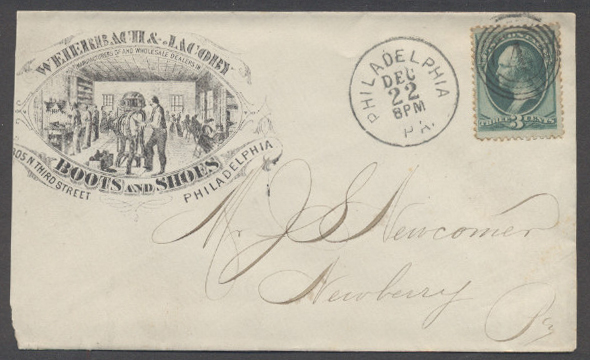 WEIERBACH & JACOBY
MANUFACTURERS OF AND WHOLESALE DEALERS IN
BOOTS AND SHOES
N. THIRD STREET
PHILADELPHIA
PHILADELPHIA
DEC
22
8PM
PA.
THREE 3 CENTS
Mr J S Newcomer
Newberry
Pa